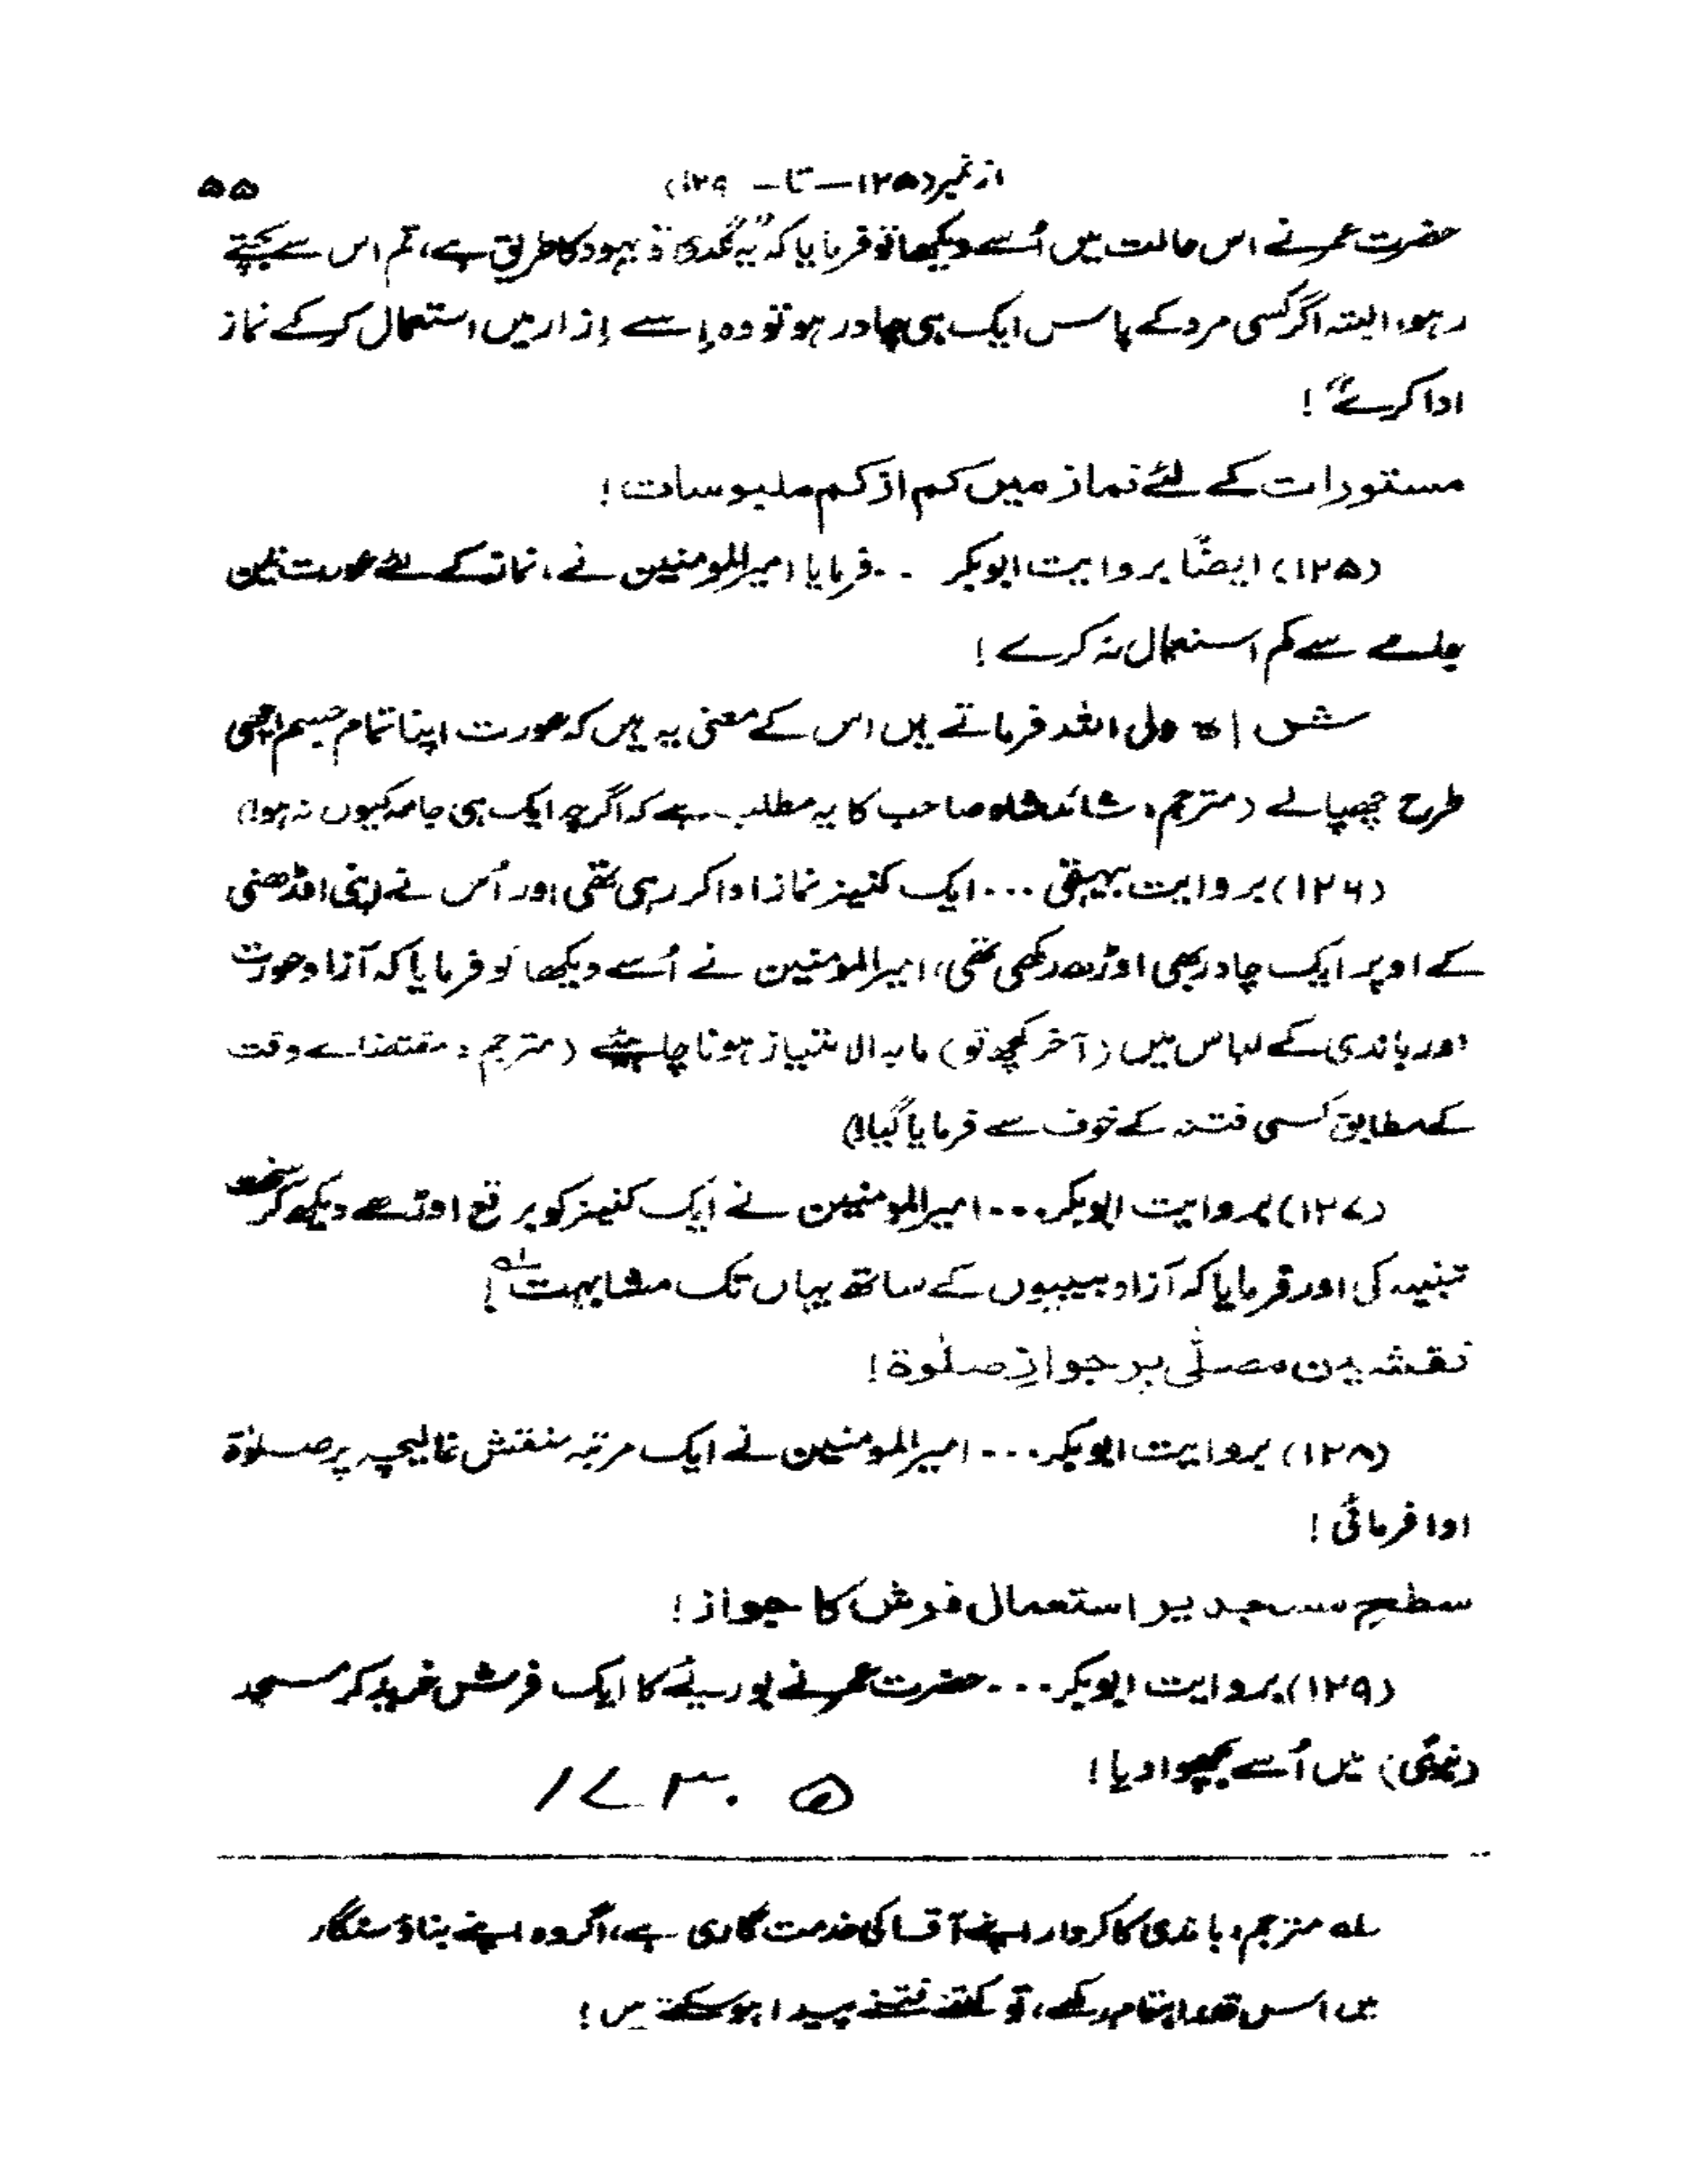 از نمبر (۱۲۵ — تا — ۱۲۹) ۵۵
حضرت عمر نے اس حالت میں اُسے دیکھا تو فرمایا کہ "یہ یہود کا طریق ہے، تم اس سے بچتے
رہو، البتہ اگر کسی مرد کے پاس ایک ہی چادر ہو تو وہ اِسے اِزار میں استعمال کر کے نماز
ادا کرے"!
مستورات کے لئے نماز میں کم از کم ملبوسات!
(۱۲۵) ایضًا بروایت ابوبکر ... فرمایا امیرالمومنین نے، نماز کے لئے عورت تین
جامے سے کم استعمال نہ کرے!
شاہ ولی اللہ فرماتے ہیں اس کے معنی یہ ہیں کہ عورت اپنا تمام جسم اچھی
طرح چھپالے (مترجم: شائد شاہ صاحب کا یہ مطلب ہے کہ اگرچہ ایک ہی جامہ کیوں نہ ہو!)
(۱۲۶) بروایت بیہقی ... ایک کنیز نماز ادا کر رہی تھی اور اُس نے اپنی اوڑھنی
کے اوپر ایک چادر بھی اوڑھ رکھی تھی، امیرالمومنین نے اُسے دیکھا تو فرمایا کہ آزاد عورت
اور باندی کے لباس میں (آخر کچھ تو) مابہ الامتیاز ہونا چاہئے (مترجم: مقتضاے وقت
کے مطابق کسی فتنہ کے خوف سے فرمایا گیا!)
(۱۲۷) بروایت ابوبکر ... امیرالمومنین نے ایک کنیز کو برقع اوڑھے دیکھ کر سخت
تنبیہ کی اور فرمایا کہ آزاد بیبیوں کے ساتھ یہاں تک مشابہت لہ!
نقشین مصلّٰی پر جوازِ صلٰوۃ!
(۱۲۸) بروایت ابوبکر ... امیرالمومنین نے ایک مرتبہ منقش غالیچہ پر صلوٰۃ
ادا فرمائی!
سطح مسجد پر استعمال فرش کا جواز!
(۱۲۹) بروایت ابوبکر ... حضرت عمر نے بوریئے کا ایک فرش خرید کر مسجد
(نبوی) میں اُسے بچھوا دیا!
لہ مترجم: باندی کا کردار اپنے آقا کی خدمت گاری ہے، اگر وہ اپنے بناؤ سنگار
میں اس قدر اہتمام رکھے، تو کتنے فتنے پیدا ہو سکتے ہیں!